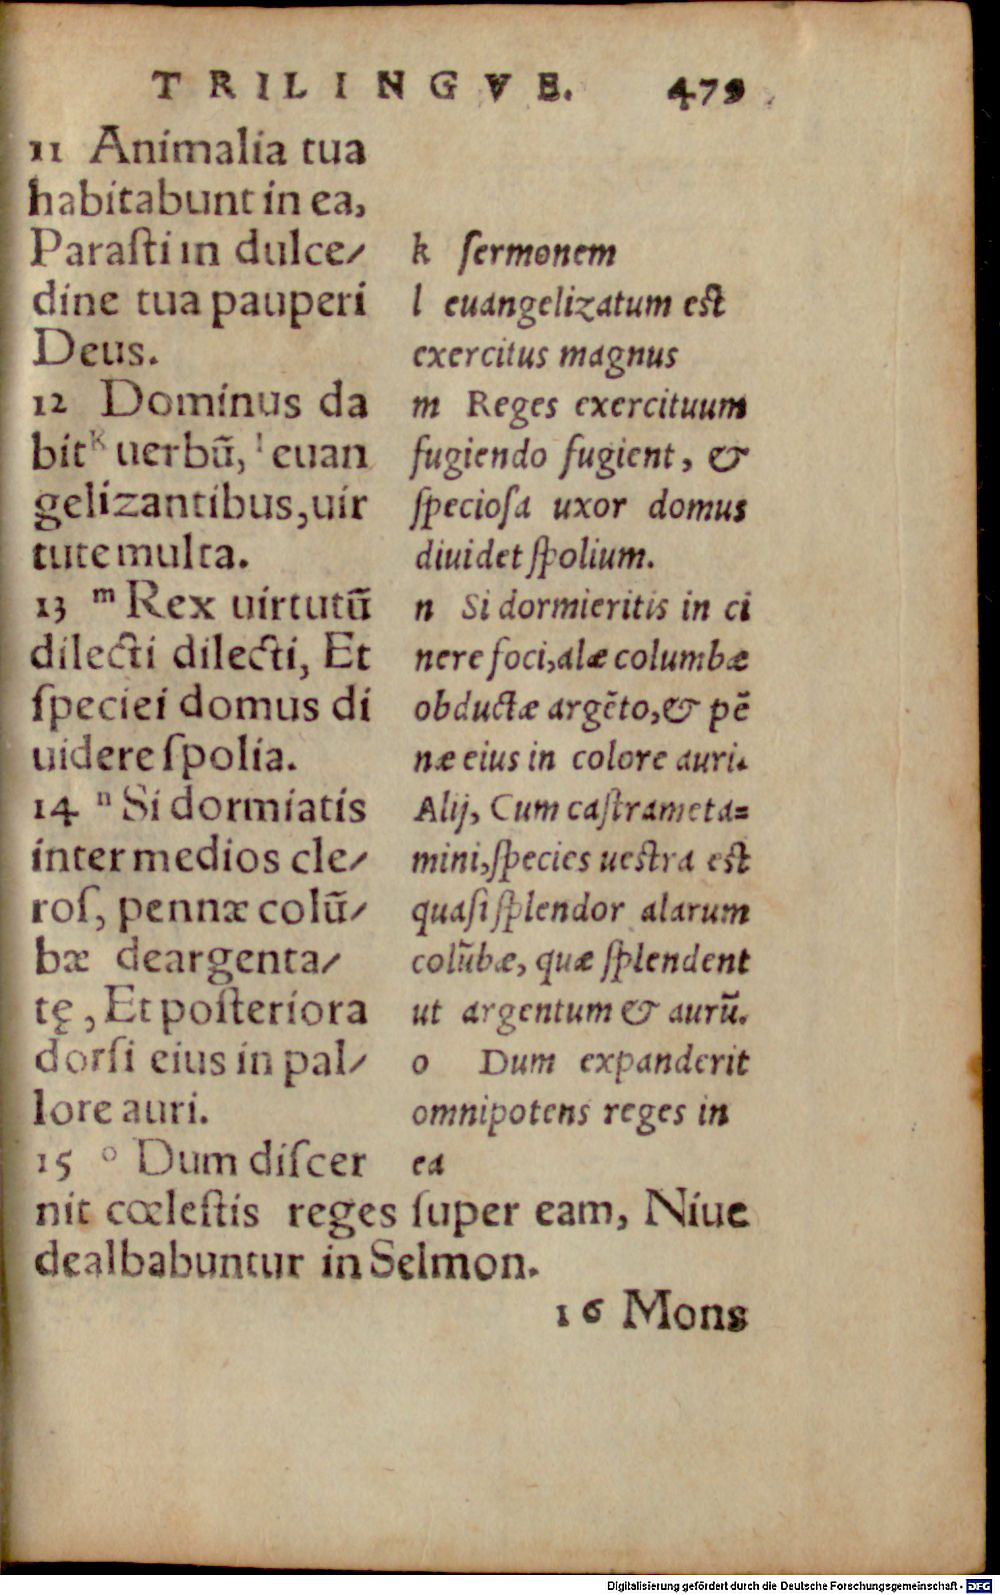 TRILINGVE. 479
11 Animalia tua
habitabunt in ea,
Paraſti in dulce/
dine tua pauperi
Deus.
12 Dominus da
bit ᵏ uerbũ, ˡ euan
gelizantibus, uir
tute multa.
13 ᵐ Rex uirtutũ
dilecti dilecti, Et
ſpeciei domus di
uidere ſpolia.
14 ⁿ Si dormiatis
inter medios cle/
roſ, pennæ colũ/
bæ deargenta/
tę, Et poſteriora
dorſi eius in pal/
lore auri.
15 ᵒ Dum diſcer
nit cœleſtis reges ſuper eam, Niue
dealbabuntur in Selmon.
k ſermonem
l euangelizatum est
exercitus magnus
m Reges exercituum
fugiendo fugient, &
ſpecioſa uxor domus
diuidet ſpolium.
n Si dormieritis in ci
nere foci, alæ columbæ
obductæ argẽto, & pẽ
næ eius in colore auri.
Alij, Cum caſtrameta=
mini, ſpecies uestra est
quaſi ſplendor alarum
colũbæ, quæ ſplendent
ut argentum & aurũ.
o Dum expanderit
omnipotens reges in
ea
16 Mons
Digitalisierung gefördert durch die Deutsche Forschungsgemeinschaft - DFG